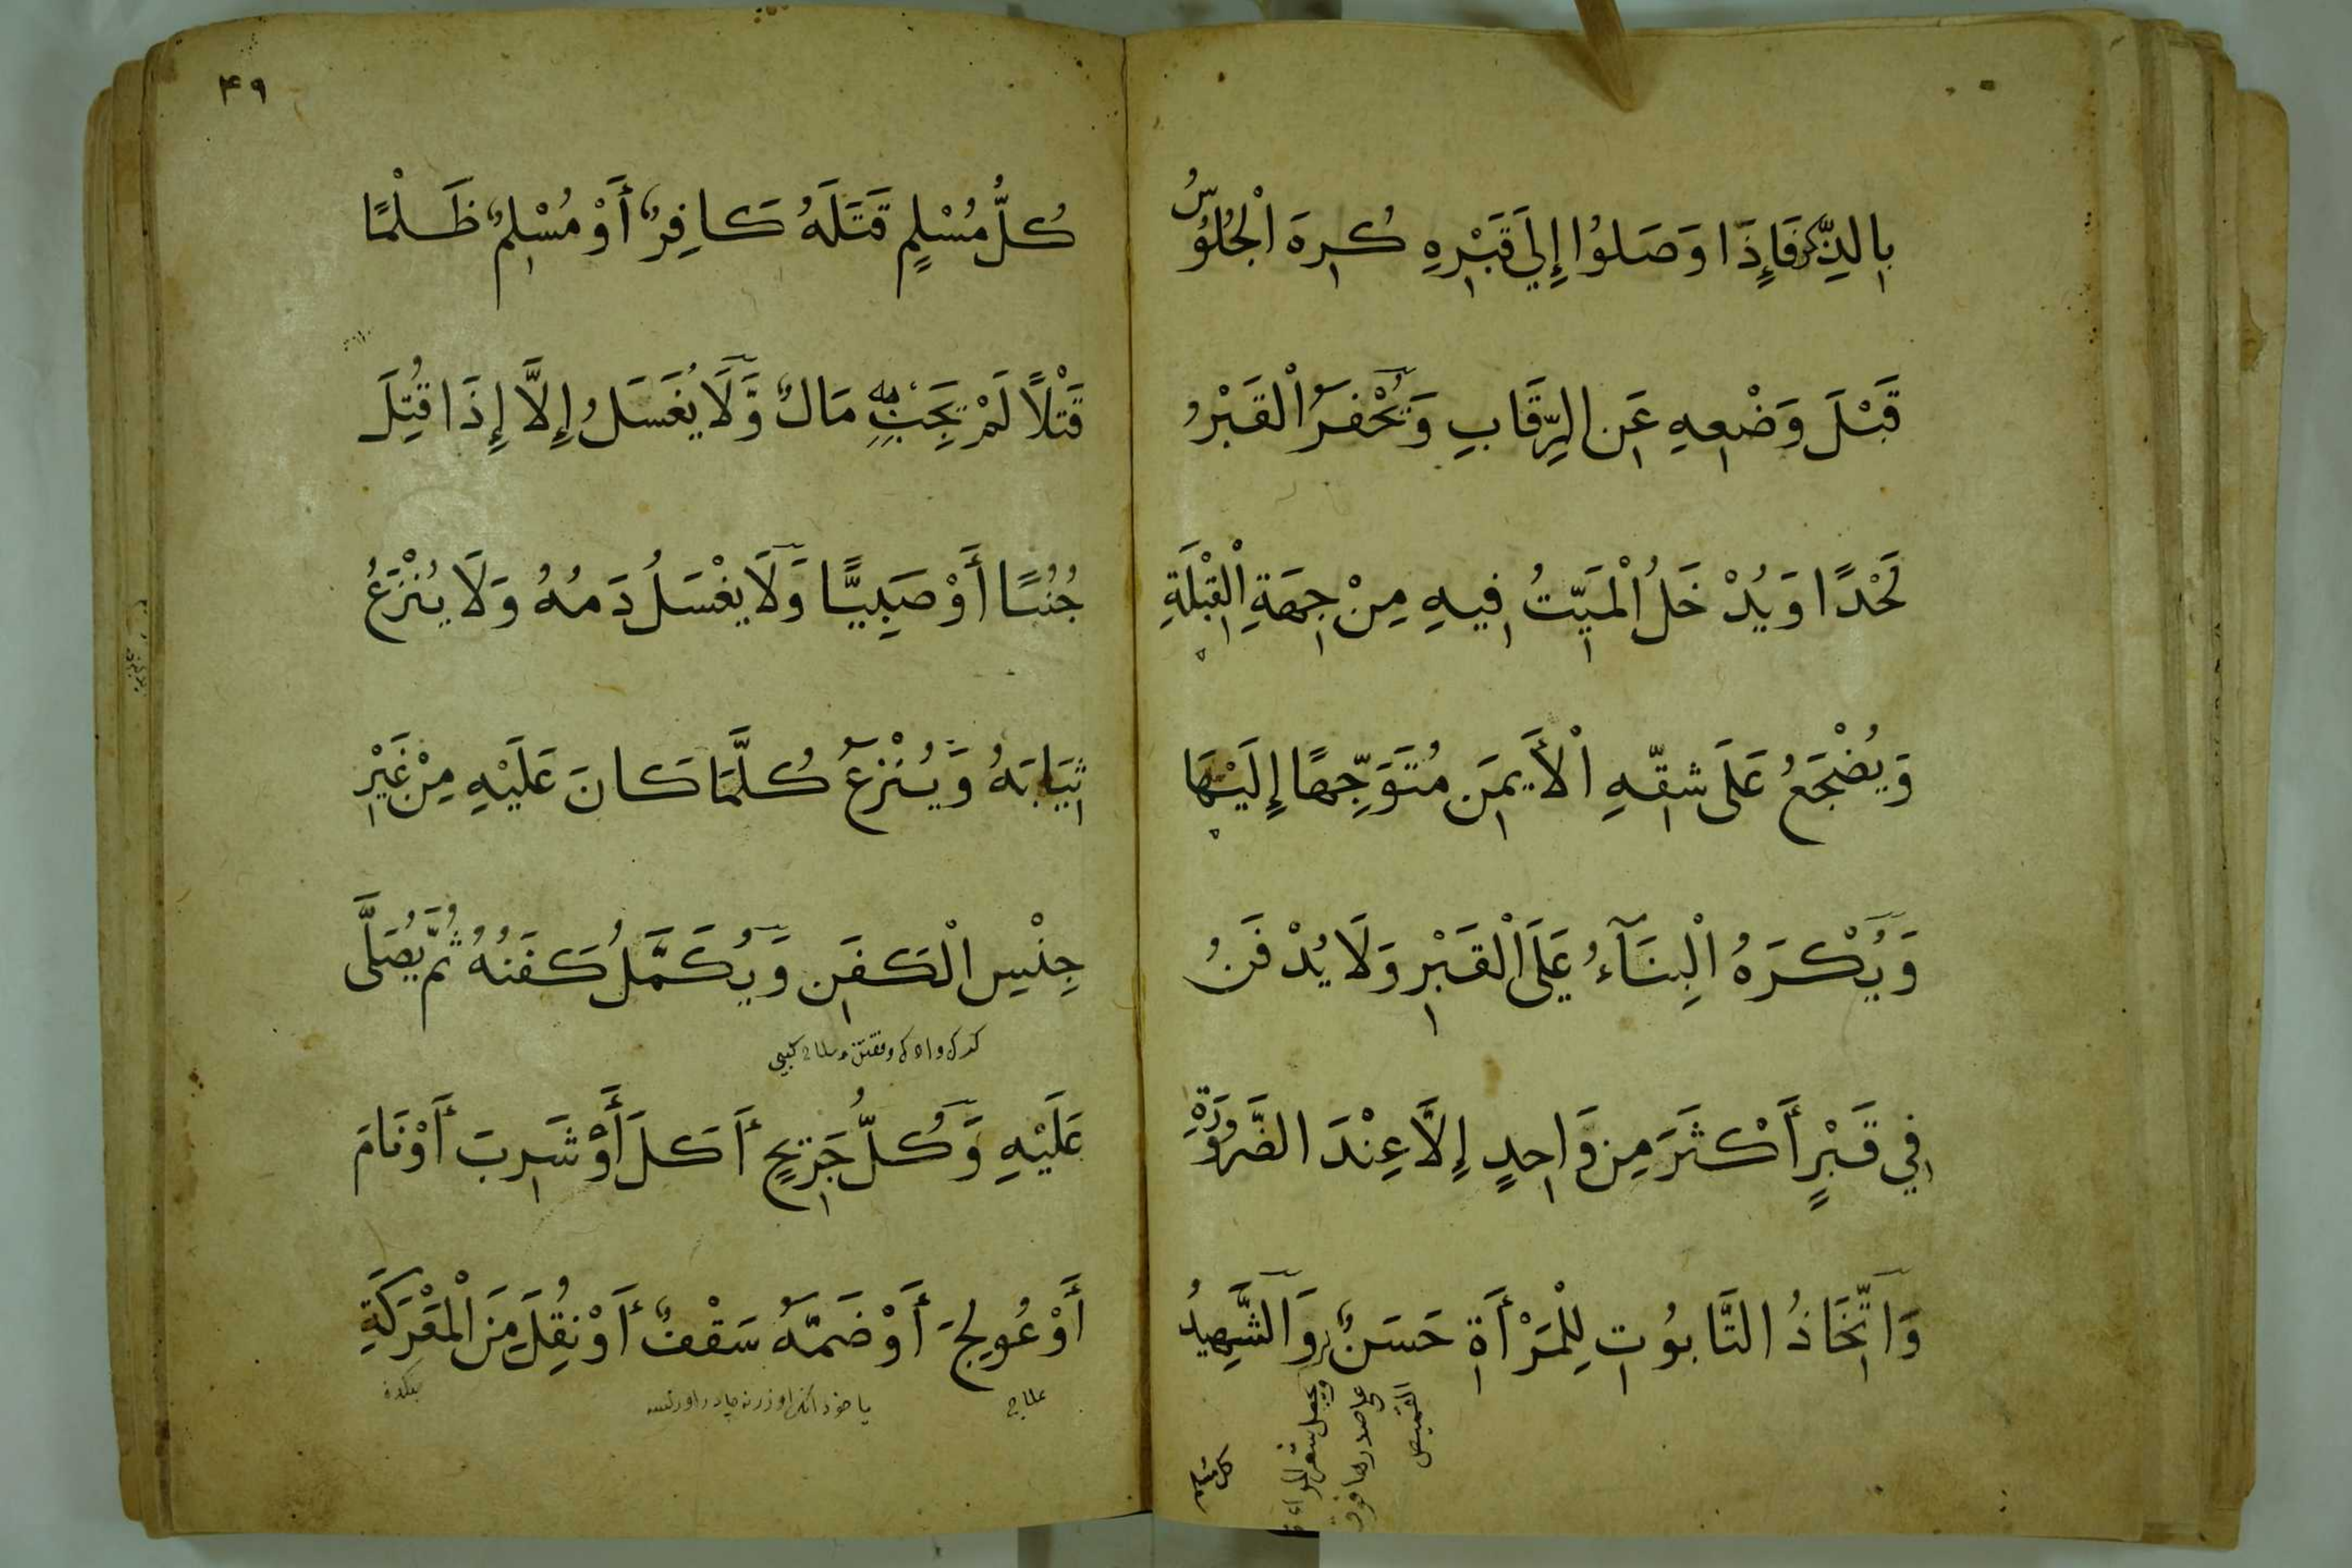 بِالذِّكْرِ فَإِذَا وَصَلُوْا إِلَي قَبْرِهِ كُرِهَ الْجُلُوْسُ
قَبْلَ وَضْعِهِ عَنِ الرِّقَابِ وَيُحْفَرُ الْقَبْرُ
لَحْدًا وَيُدْخَلُ الْمَيِّتُ فِيهِ مِنْ جِهَةِ الْقِبْلَةِ
وَيُضْجَعُ عَلَى شِقِّهِ الْأَيْمَنِ مُتَوَجِّهًا إِلَيْهَا
وَيُكْرَهُ الْبِنَآءُ عَلَى الْقَبْرِ وَلَا يُدْفَنُ
فِي قَبْرٍ أَكْثَرَ مِن وَّاحِدٍ إِلَّا عِنْدَ الضَّرُوْرَةِ
وَاتِّخَاذُ التَّابُوْتِ لِلْمَرْأَةِ حَسَنٌ وَالشَّهِيدُ
ويجعل شعر المراة
على صدرها فوق
القميص
كل مسلم
۴۹
كُلُّ مُسْلِمٍ قَتَلَهُ كَافِرٌ أَوْ مُسْلِمٌ ظَلْمًا
قَتْلًا لَمْ يَجِبْ بِهِ مَالٌ وَّلَا يُغَسَلُ إِلَّا إِذَا قُتِلَ
جُنُبًا أَوْ صَبِيًّا وَّلَا يُغْسَلُ دَمُهُ وَلَا يُنْزَعُ
ثِيَابَهُ وَّيُنْزَعُ كُلَّمَا كَانَ عَلَيْهِ مِنْ غَيْرِ
جِنْسِ الْكَفَنِ وَيُكَمَّلُ كَفَنُهُ ثُمَّ يُصَلَّى
عَلَيْهِ وَكُلُّ جَرِيْحٍ أَكَلَ أَوْ شَرِبَ أَوْ نَامَ
أَوْ عُوِلجَ أَوْ ضَمَّهُ سَقْفٌ أَوْ نُقِلَ مِنَ الْمَعْرَكَةِ
علاج